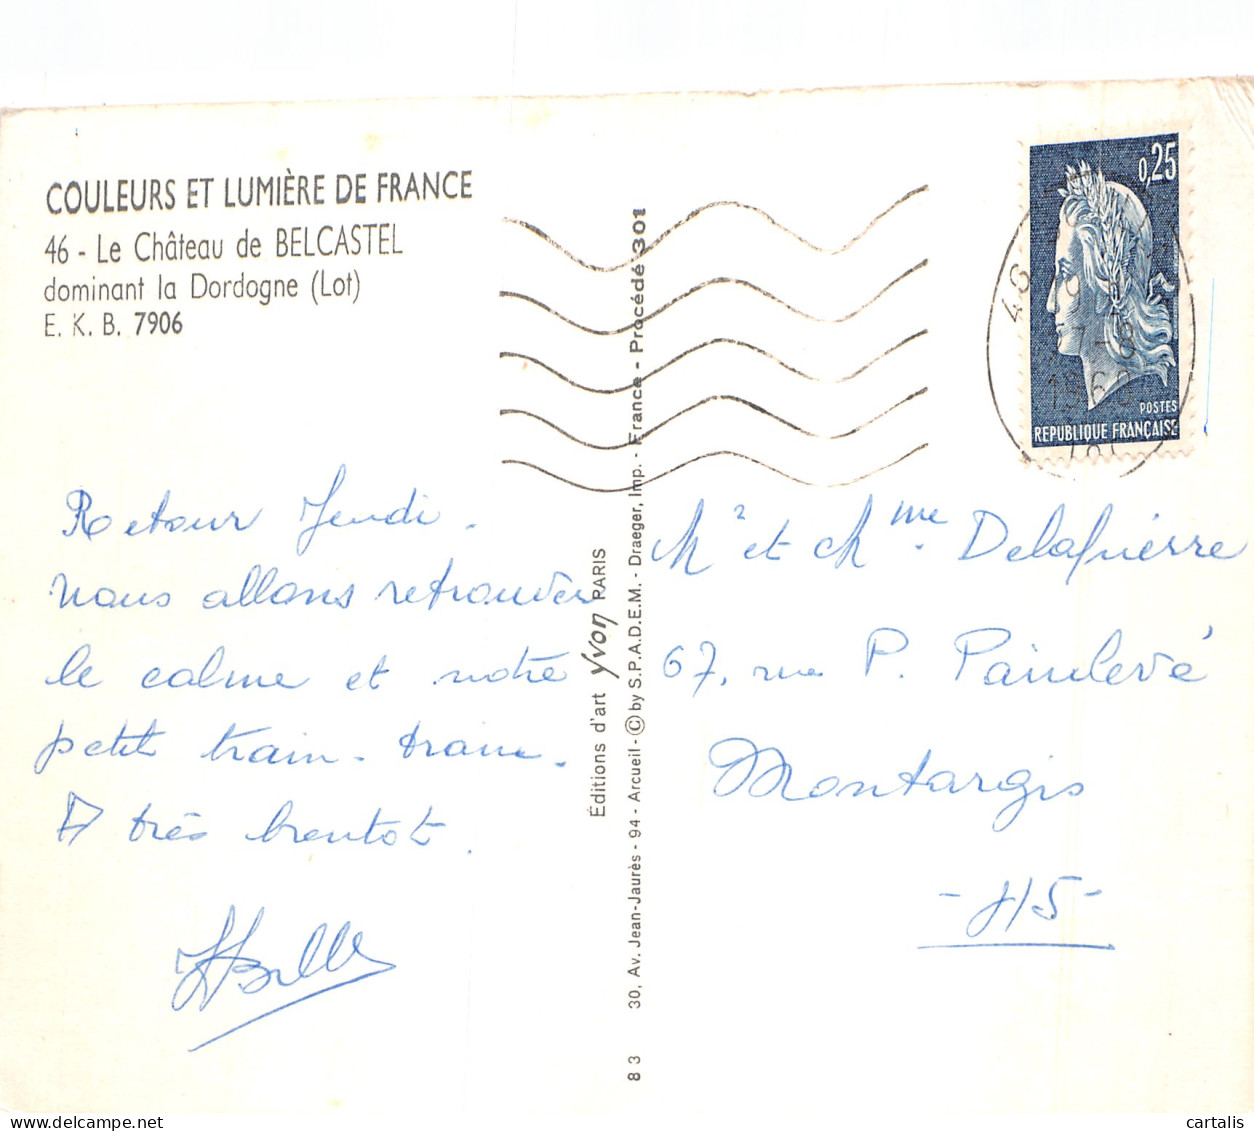 COULEURS ET LUMIÈRE DE FRANCE
46 - Le Château de BELCASTEL
dominant la Dordogne (Lot)
E. K. B. 7906
0,25
POSTES
REPUBLIQUE FRANÇAISE
46
7-8
196
Retour Jeudi.
Nous allons retrouver
le calme et notre
petit train-train.
A très bientôt.
Éditions d'art Yvon PARIS
30, Av. Jean-Jaurès - 94 - Arcueil - © by S.P.A.D.E.M. - Draeger, Imp. - France - Procédé 301
8 3
Mr et Mme Delapierre
67, rue P. Painlevé
Montargis
- 45 -
delcampe.net
cartalis